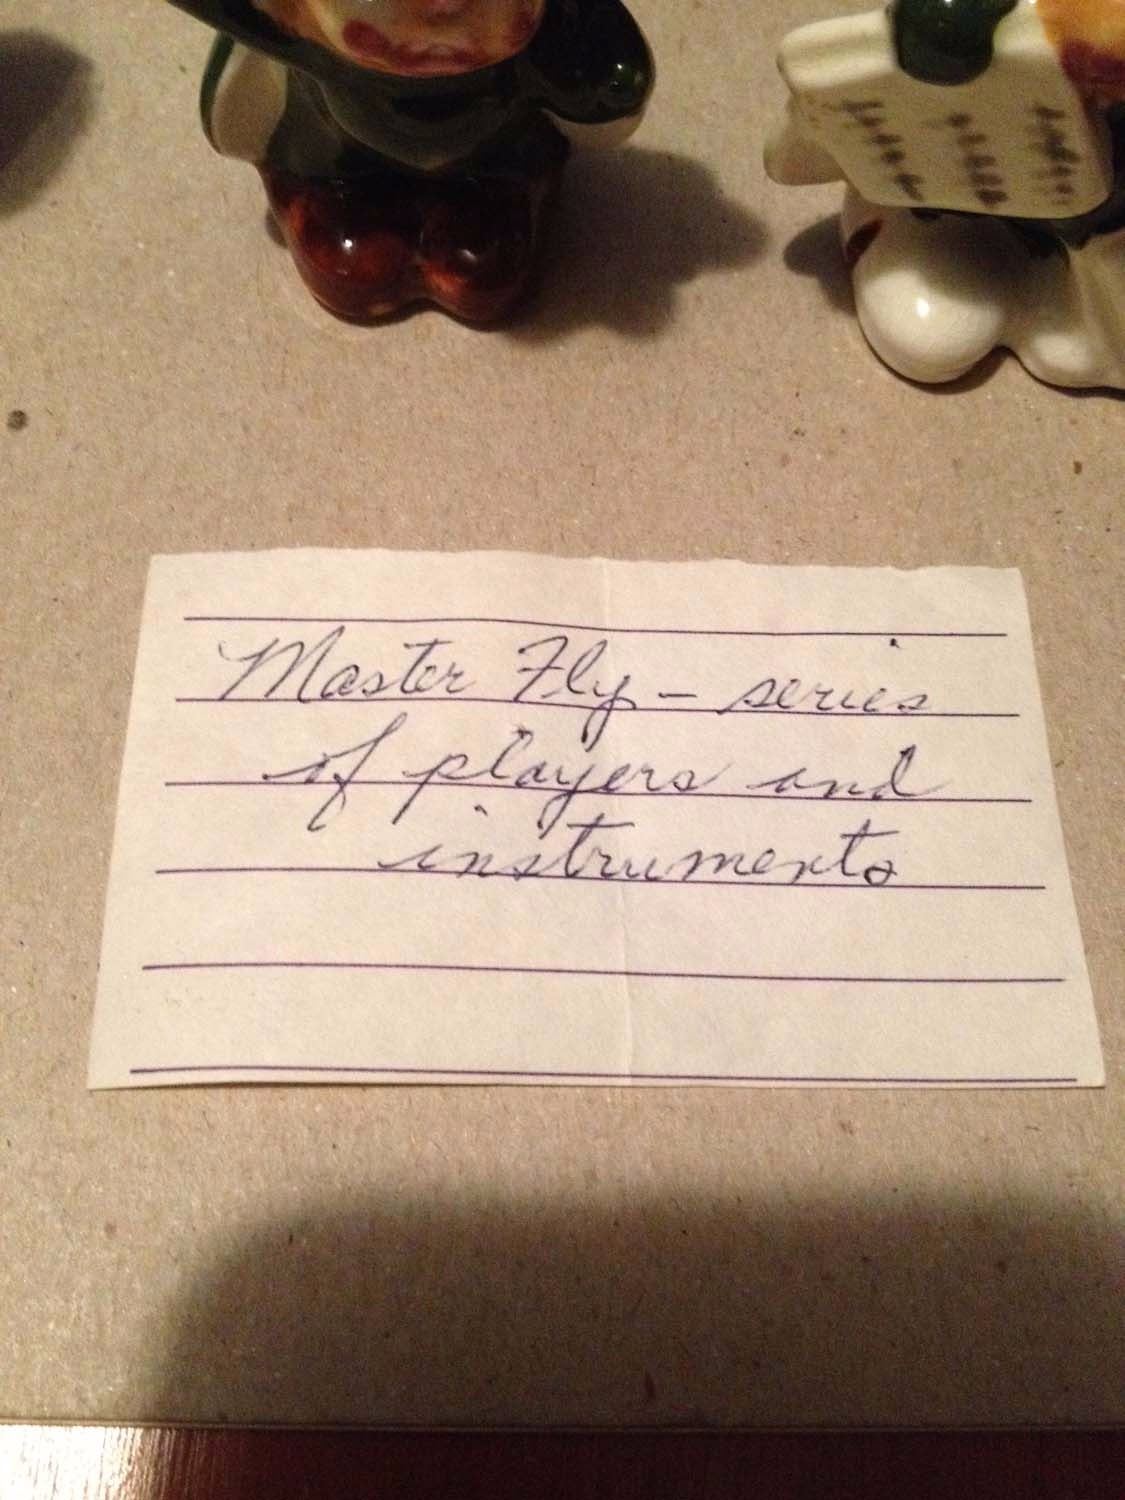 Master Fly - series
of players and
instruments